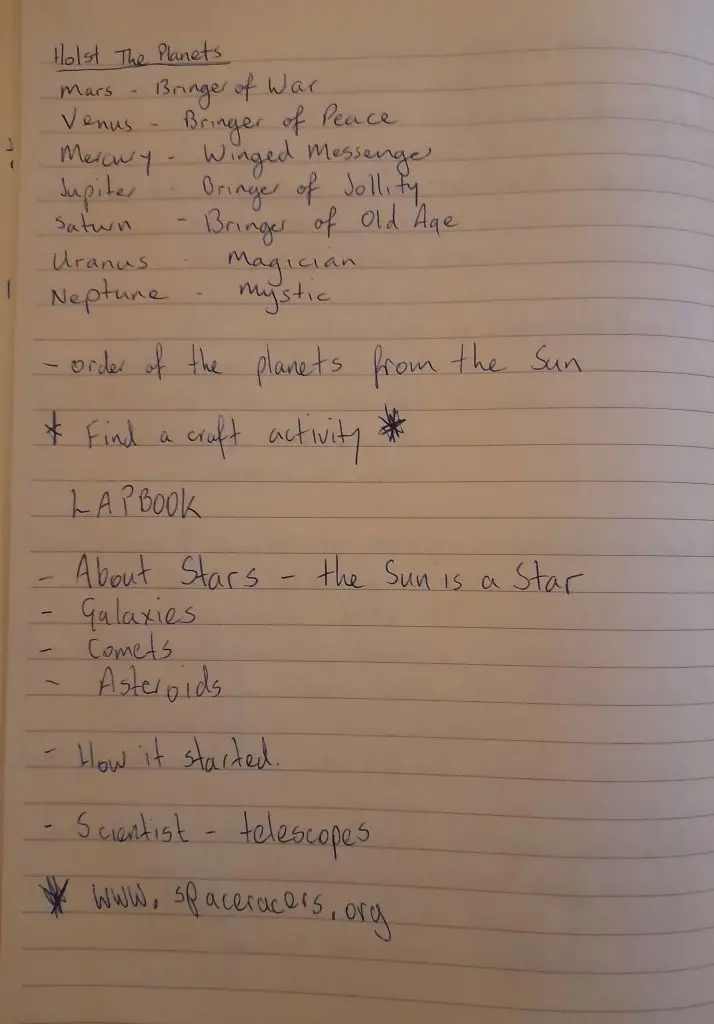 Holst The Planets
Mars - Bringer of War
Venus - Bringer of Peace
Mercury - Winged Messenger
Jupiter - Bringer of Jollity
Saturn - Bringer of Old Age
Uranus - Magician
Neptune - Mystic
- order of the planets from the Sun
* Find a craft activity *
LAPBOOK
- About Stars - the Sun is a Star
- Galaxies
- Comets
- Asteroids
- How it started.
- Scientist - telescopes
* www.spaceracers.org